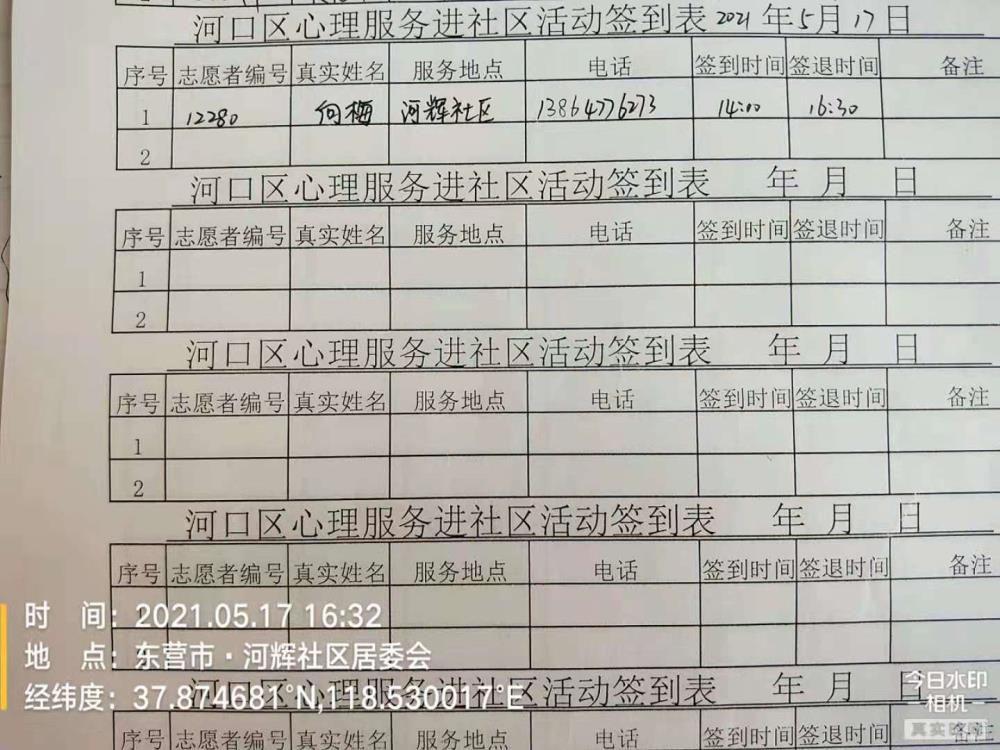 河口区心理服务进社区活动签到表 2021 年 5 月 17 日
序号 志愿者编号 真实姓名 服务地点 电话 签到时间 签退时间 备注
1 12280 向梅 河辉社区 13864776273 14:00 16:30
2
河口区心理服务进社区活动签到表 年 月 日
序号 志愿者编号 真实姓名 服务地点 电话 签到时间 签退时间 备注
1
2
河口区心理服务进社区活动签到表 年 月 日
序号 志愿者编号 真实姓名 服务地点 电话 签到时间 签退时间 备注
1
2
河口区心理服务进社区活动签到表 年 月 日
序号 志愿者编号 真实姓名 服务地点 电话 签到时间 签退时间 备注
时 间：2021.05.17 16:32
地 点：东营市·河辉社区居委会
经纬度：37.874681°N,118.530017°E
河口区心理服务进社区活动签到表 年 月 日
今日水印
-相机-
序号 志愿者编号 真实姓名 服务地点 电话 签到时间 签退时间 备注